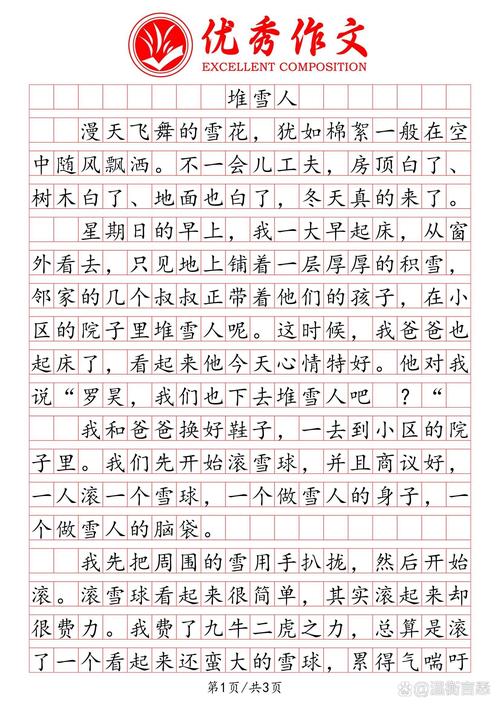 优秀作文
EXCELLENT COMPOSITION
堆雪人
漫天飞舞的雪花，犹如棉絮一般在空
中随风飘洒。不一会儿工夫，房顶白了、
树木白了、地面也白了，冬天真的来了。
星期日的早上，我一大早起床，从窗
外看去，只见地上铺着一层厚厚的积雪，
邻家的几个叔叔正带着他们的孩子，在小
区的院子里堆雪人呢。这时候，我爸爸也
起床了，看起来他今天心情特好。他对我
说“罗昊，我们也下去堆雪人吧　？“
我和爸爸换好鞋子，一去到小区的院
子里。我们先开始滚雪球，并且商议好，
一人滚一个雪球，一个做雪人的身子，一
个做雪人的脑袋。
我先把周围的雪用手扒拢，然后开始
滚。滚雪球看起来很简单，其实滚起来却
很费力。我费了九牛二虎之力，总算是滚
了一个看起来还蛮大的雪球，累得气喘吁
第1页/共3页